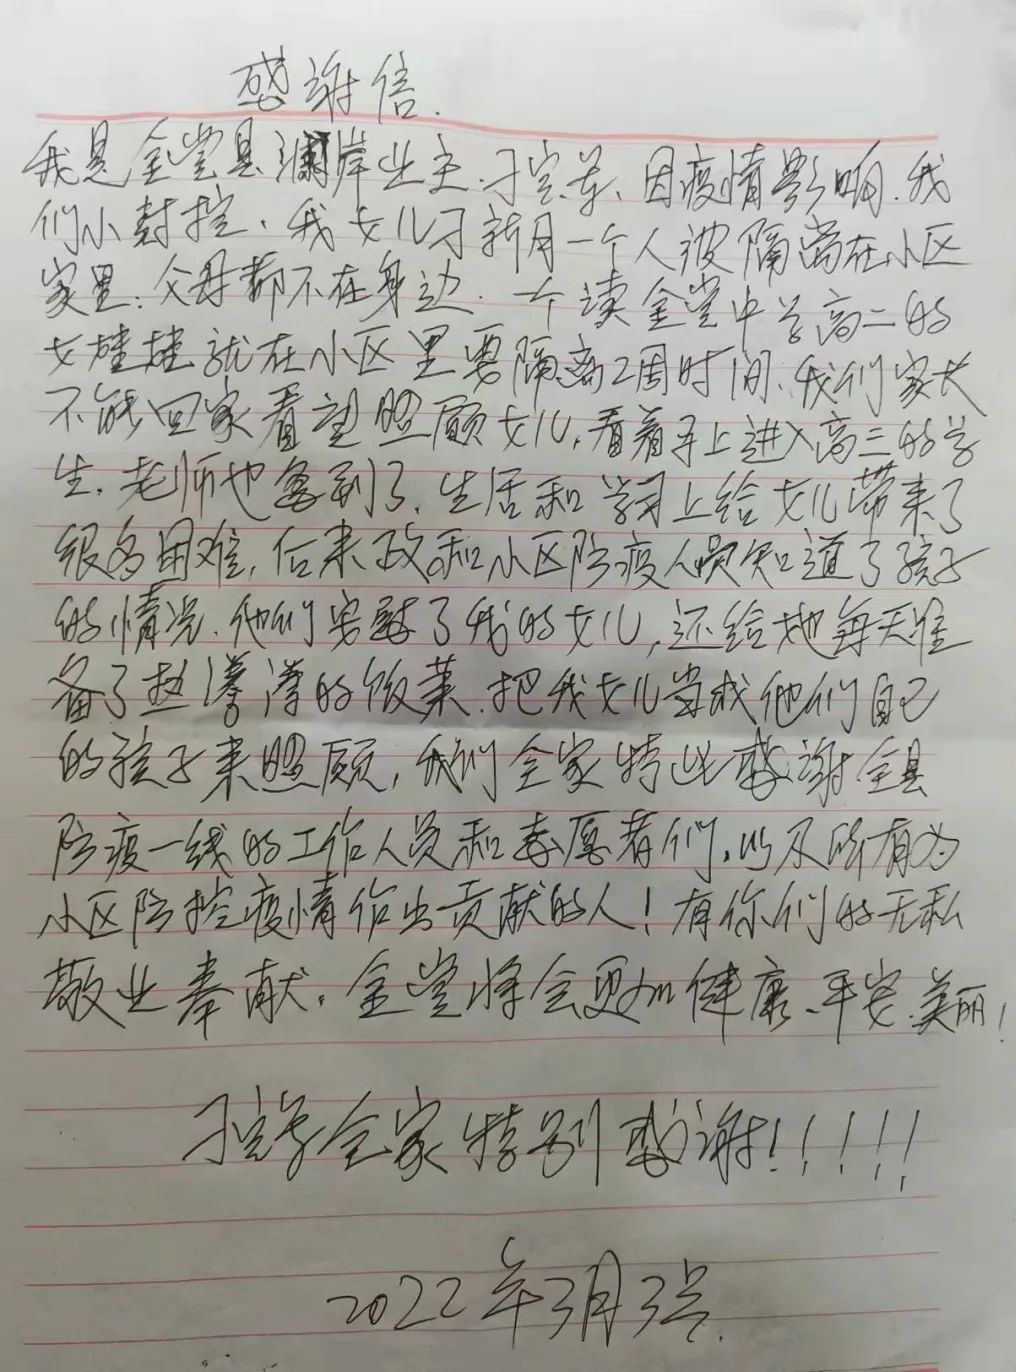 感谢信.
我是金堂县澜岸业主.刁,因疫情影响.我
们小封控.我女儿刁新月一个人被隔离在小区
家里.父母都不在身边.一个读金堂中学高二的
女娃娃就在小区里要隔离2周时间.我们家长
不能回家看望照顾女儿,看着马上进入高三的学
生.老师也急到了.生活和学习上给女儿带来了
很多困难,后来政和小区防疫人员知道了孩子
的情况.他们安慰了我的女儿,还给她每天准
备了热的饭菜.把我女儿当成他们自己
的孩子来照顾,我们全家特此感谢全县
防疫一线的工作人员和志愿者们,以及所有为
小区防控疫情作出贡献的人!有你们的无私
敬业奉献,金堂将会更加健康、平安.美丽!
刁全家特别感谢!!!!!!
2022年3月3号.